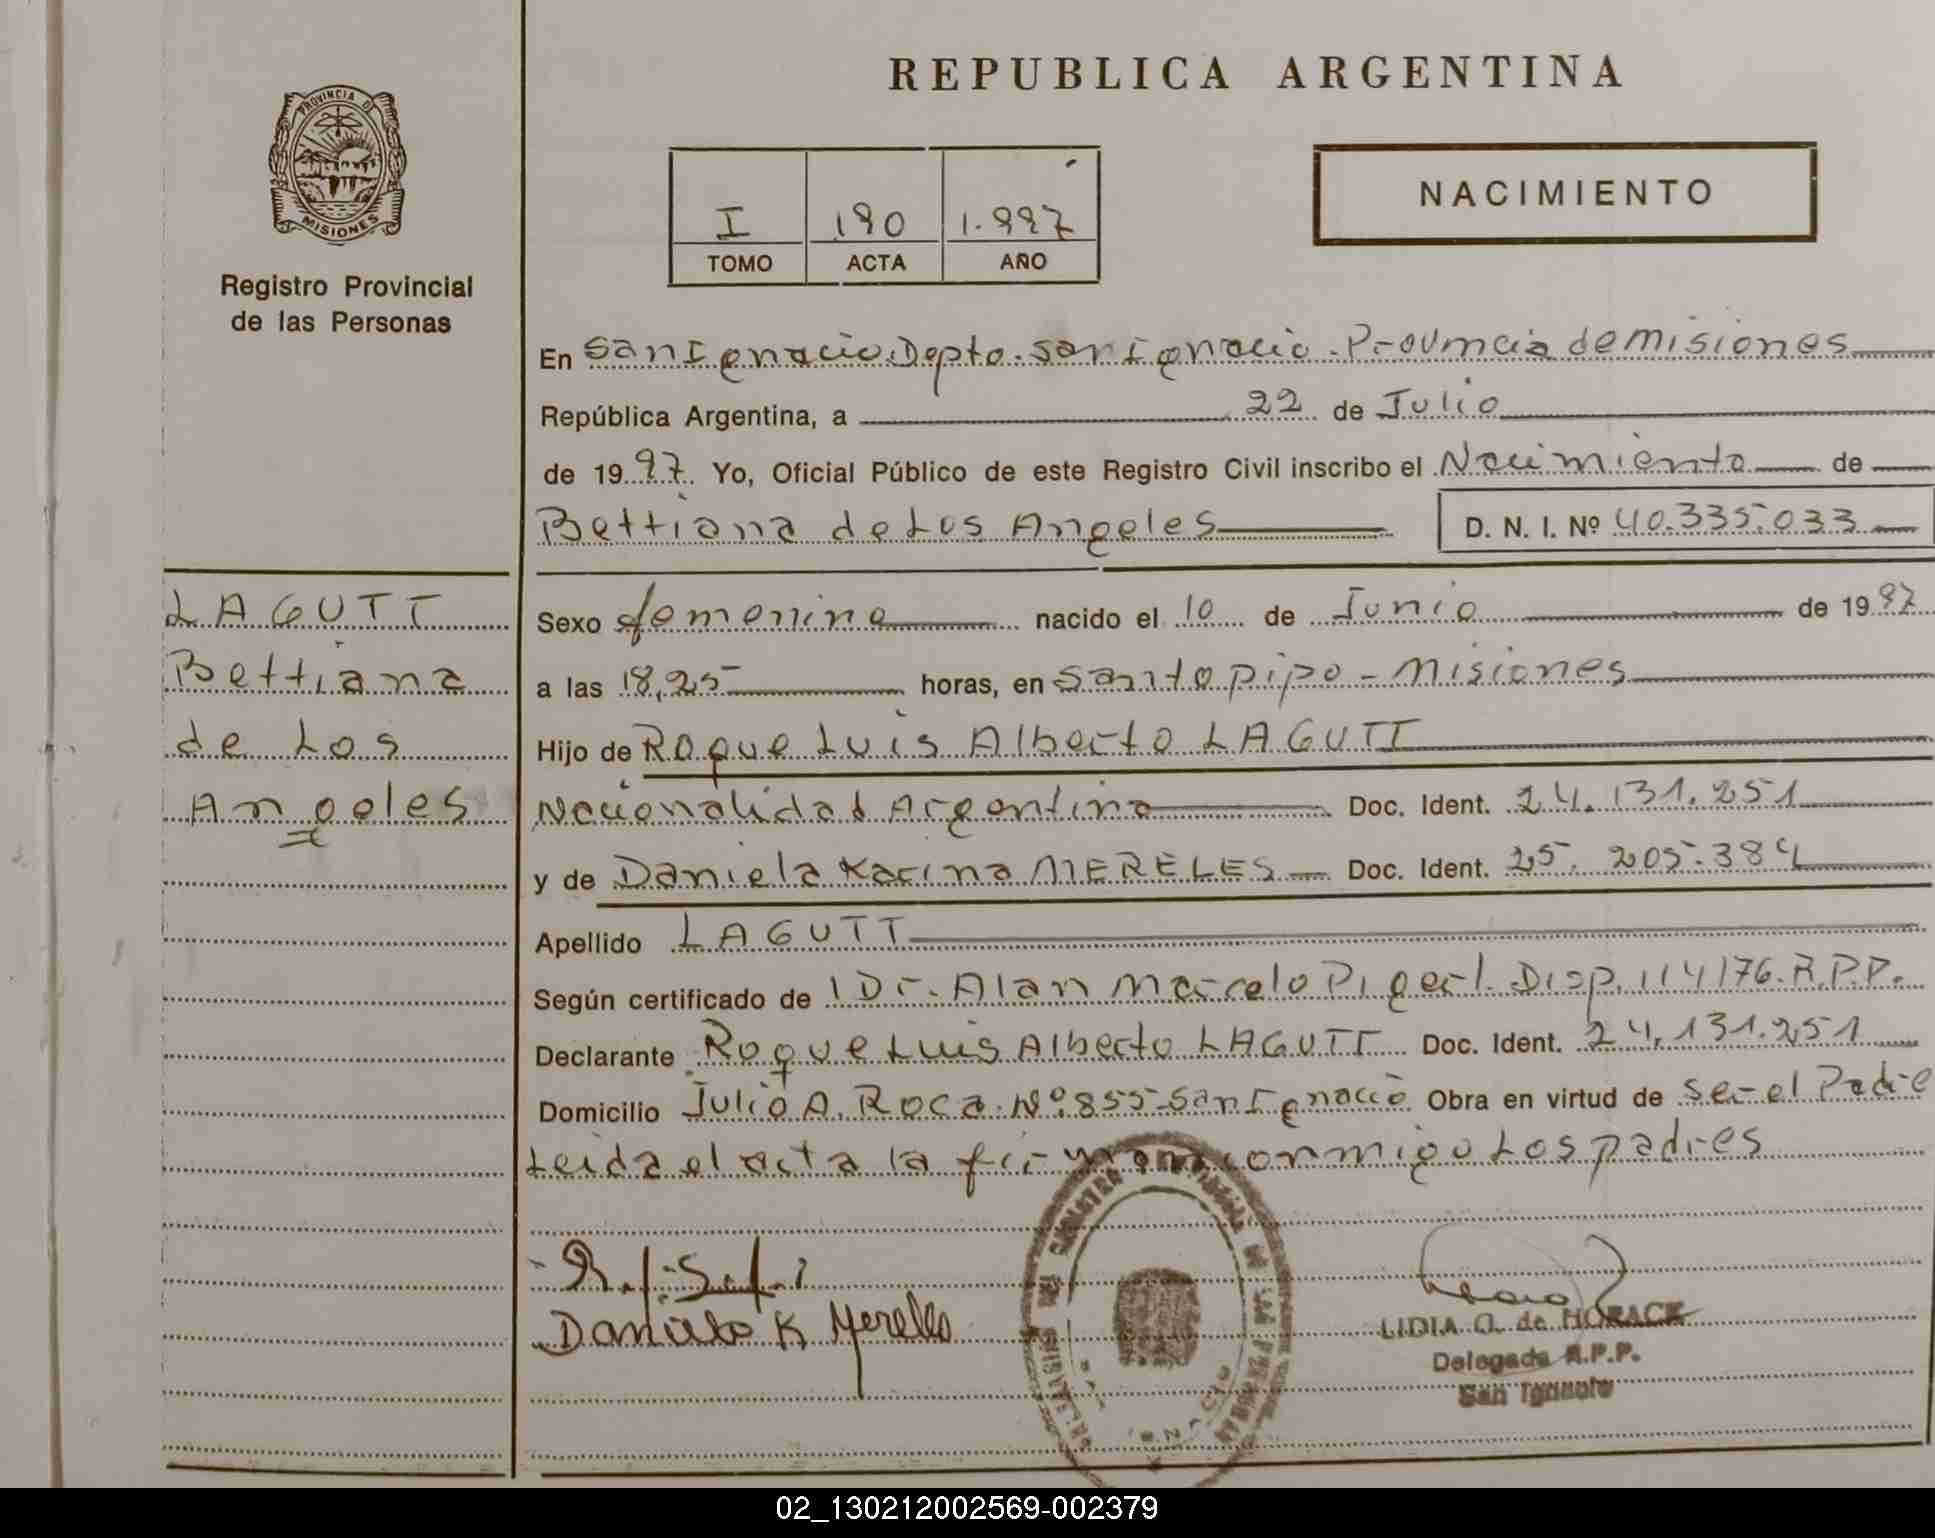 REPUBLICA ARGENTINA
PROVINCIA DE
MISIONES
Registro Provincial
de las Personas
I 190 1.997
TOMO ACTA AÑO
NACIMIENTO
En San Ignacio. Depto. San Ignacio. Provincia de Misiones
República Argentina, a 22 de Julio
de 1997. Yo, Oficial Público de este Registro Civil inscribo el Nacimiento de
Bettiana de Los Angeles D. N. I. Nº 40.335.033
LAGUTT
Bettiana
de Los
Angeles
Sexo femenino nacido el 10 de Junio de 1997
a las 18,25 horas, en Santo pipo - Misiones
Hijo de Roque Luis Alberto LAGUTT
Nacionalidad Argentina Doc. Ident. 24.131.251
y de Daniela Karina MERELES Doc. Ident. 25.205.384
Apellido LAGUTT
Según certificado de l Dr. Alan Marcelo Pigerl. Disp. 114/76. R.P.P.
Declarante Roque Luis Alberto LAGUTT Doc. Ident. 24.131.251
Domicilio Julio A. Roca. Nº 855 - San Ignacio Obra en virtud de ser el Padre
Leida el acta la firman conmigo Los padres
Daniela K Mereles
LIDIA O. de HORACK
Delegada R.P.P.
San Ignacio
02_130212002569-002379